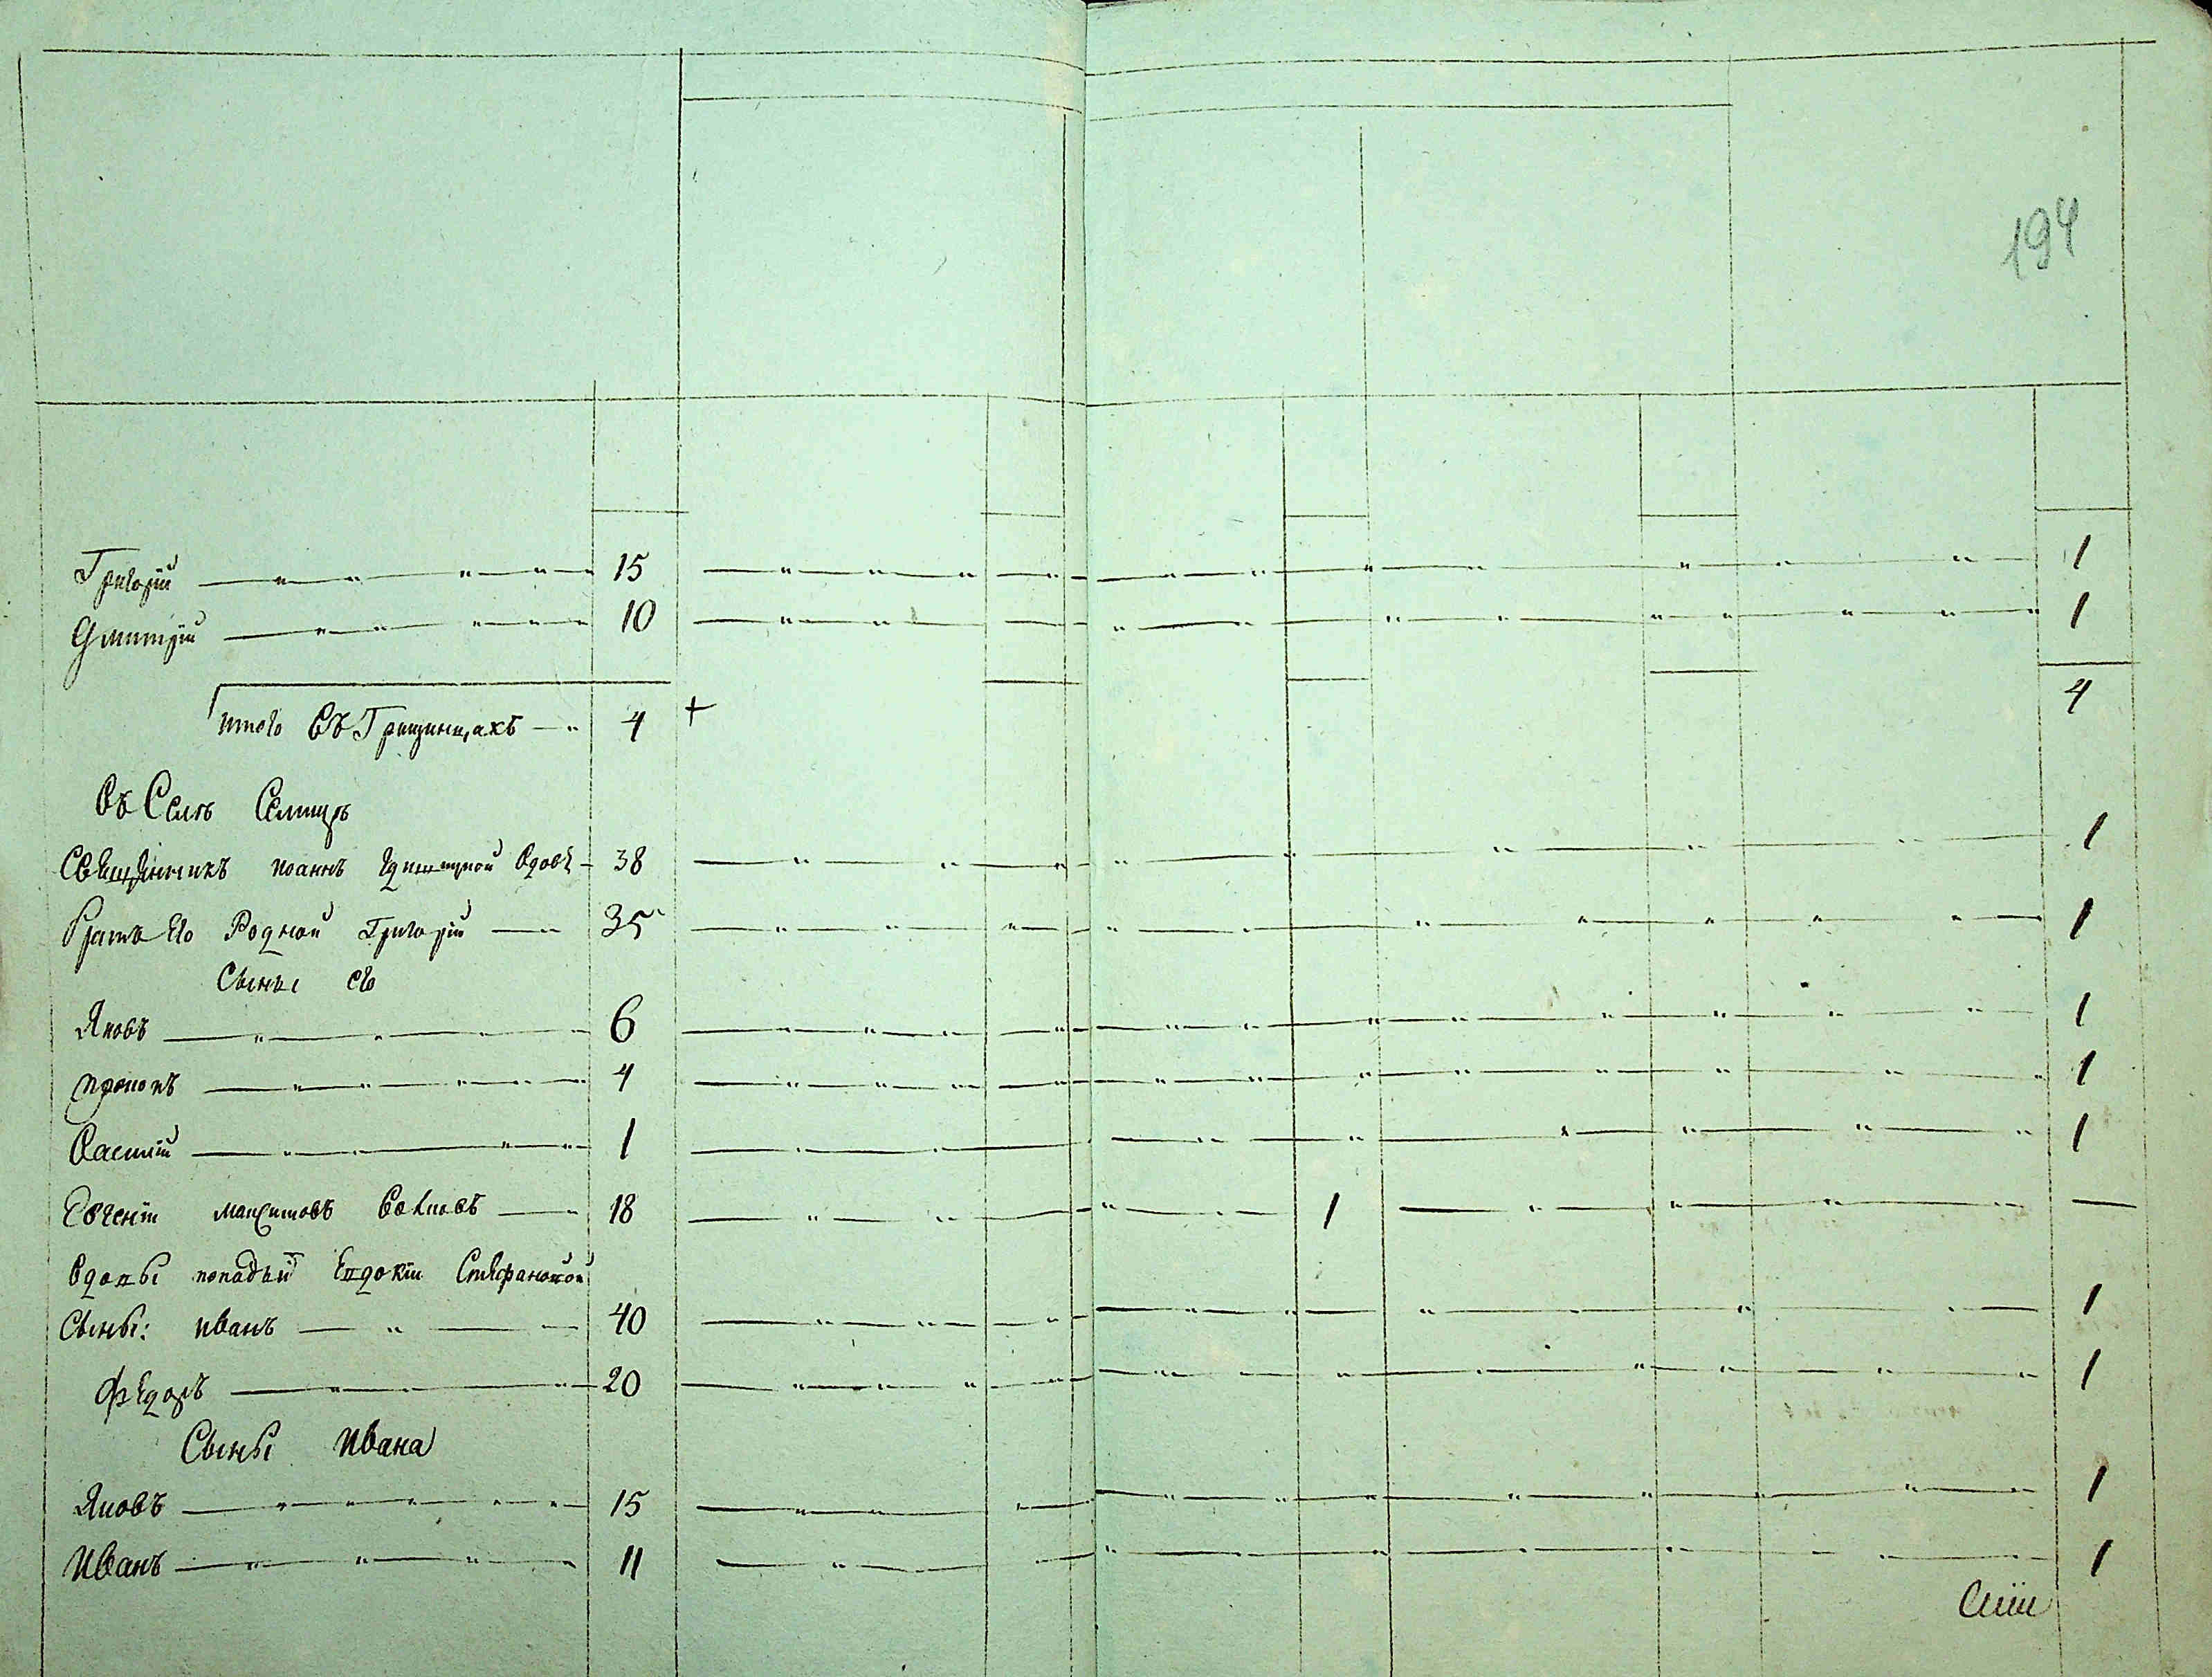 194
Григорій 15 1
Дмитрій 10 1
итого Въ Грищинцахъ 4 + 4
Въ Селѣ
Священникъ иоаннъ Вдовъ 38 1
Братъ Его Родной Григорій 35 1
Сыны его
Яковъ 6 1
прокопъ 4 1
Василій 1 1
Евгеній максимовъ 18 1
Вдовы попадьи Евдокіи Стефановой
Сыны: иванъ 40 1
ФЕдоръ 20 1
Сыны ивана
Яковъ 15 1
иванъ 11 1